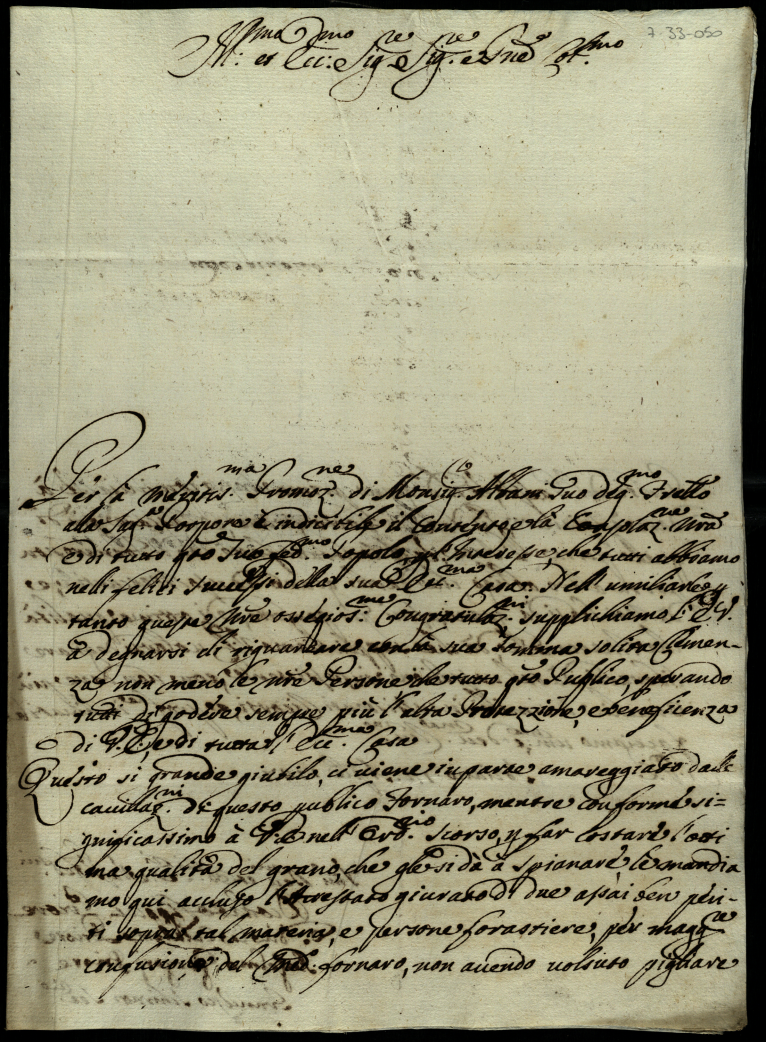 7-33-050
Ill:mo et Ecc:mo Sig.re e Sig.re e Pnē Ol.mo
Per la meritis.ma Promoz.ne di Monsig.r Albani suo deg.mo Frello
alla Sag.a Porpora è indicibile il Contento, e la Complaz.na nrā
e di tutto qto suo fed.mo Popolo, p l'Interesse, che tutti abbiamo
nelli felici successi della sua Ecc.ma Casa. Nell'umiliarle p
tanto queste nrē ossequios.me Congratulaz.ni supplichiamo l'E.V.
à degnarsi di riguardare con la sua somma solita Clemen-
za non meno le nrē Persone che tutto qto Publico, sperando
tutti di godere sempre più l'alta Protezzione, e beneficenza
di V.E. e di tutta l'Ecc.ma Casa
Questo si grande giubilo, ci viene in parte amareggiato dalle
cavillaz.ni di questo publico Fornaro, mentre conforme si-
gnificassimo à V.E. nell'Ord.rio scorso, p far costare l'otti
ma qualità del grano, che gle si dà à spianare, le mandia
mo qui acchiuso l'Attestato giurato di due assai ben peri-
ti sopra tal materia, e persone forastiere, per magg.re
confusione del med.o fornaro, non avendo volsuto pigliare